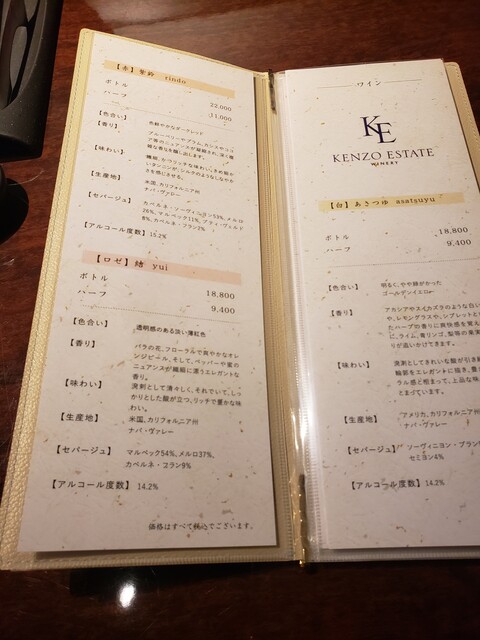 【赤】紫鈴 rindo
ボトル 22,000
ハーフ 11,000
【色合い】 色鮮やかなダークレッド
【香り】 ブルーベリーやプラム、カシスやココ
【味わい】
を感じさせる。
【生産地】 米国、カリフォルニア州
ナパ・ヴァレー
【セパージュ】 カベルネ・ソーヴィニヨン53%、メルロ
26%、マルベック11%、プティ・ヴェルド
8%、カベルネ・フラン2%
【アルコール度数】 15.2%
【ロゼ】結 yui
ボトル 18,800
ハーフ 9,400
【色合い】 透明感のある淡い薄紅色
【香り】 バラの花、フローラルで爽やかなオレ
ンジピール、そして、ペッパーや蜜の
ニュアンスが繊細に漂うエレガントな
香り。
【味わい】 溌剌として清々しく、それでいて、しっ
かりとした酸が立つ、リッチで豊かな味
わい。
【生産地】 米国、カリフォルニア州
ナパ・ヴァレー
【セパージュ】 マルベック54%、メルロ37%、
カベルネ・フラン9%
【アルコール度数】 14.2%
価格はすべて税込でございます。
ワイン
KE
KENZO ESTATE
WINERY
【白】あさつゆ asatsuyu
ボトル 18,800
ハーフ 9,400
【色合い】 明るく、やや緑がかった
ゴールデンイエロー
【香り】 アカシアやスイカズラのような白い
や、レモングラスや、シブレットとい
ったハーブの香りに爽快感を覚え
ピ、ライム、青リンゴ、梨等の果実
りが追いかけてきます。
【味わい】 溌剌としてきれいな酸が引き締
輪郭をエレガントに描き、豊か
ラル感と相まって、上品な味
とまっています。
【生産地】 アメリカ、カリフォルニア州
ナパ・ヴァレー
【セパージュ】 ソーヴィニヨン・ブラン
セミヨン4%
【アルコール度数】 14.2%